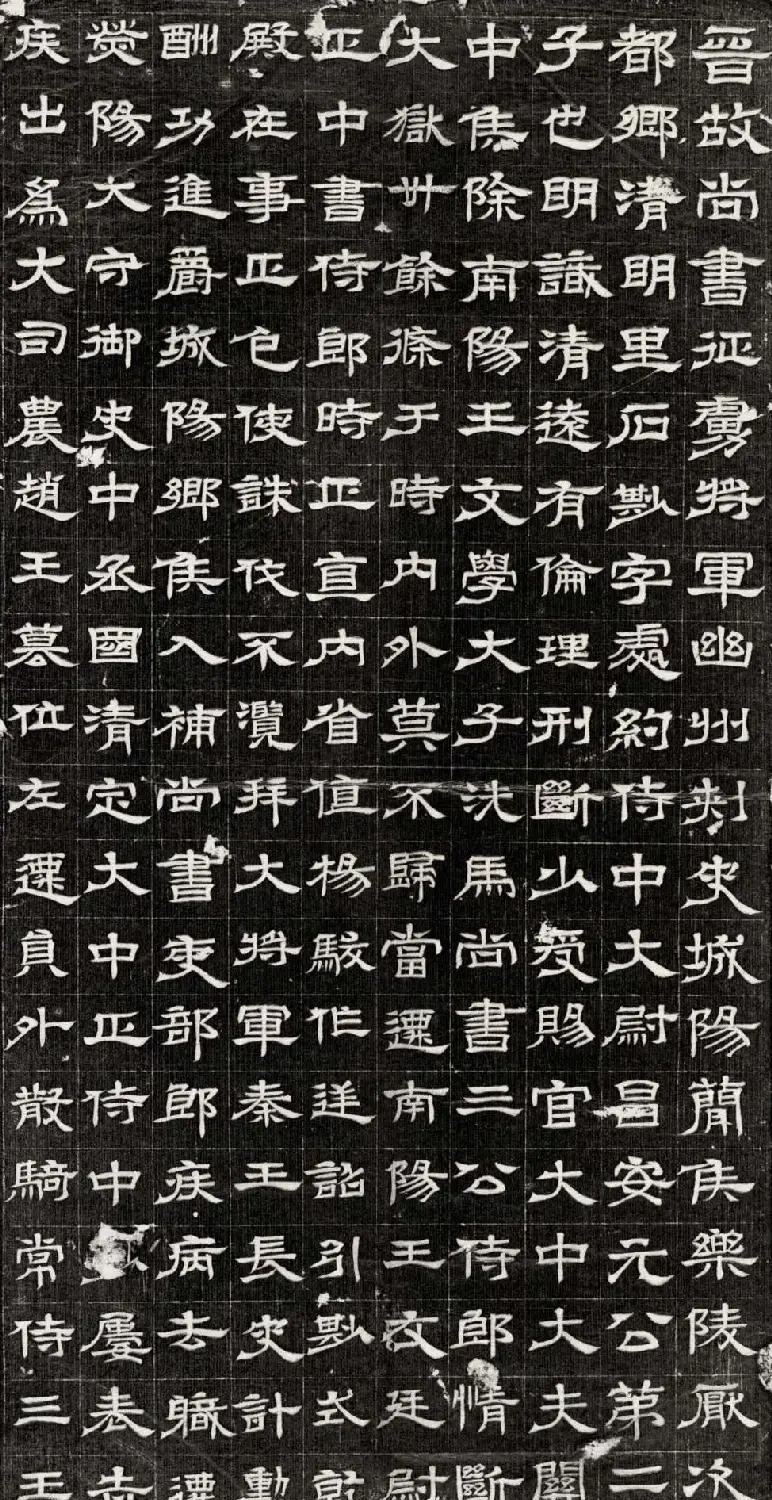 晉故尚書征虜將軍幽州刺史城陽簡侯樂陵厭次
都鄉清明里石尠字處約侍中大尉昌安元公第二
子也明識清遠有倫理刑斷少受賜官大中大夫關
中侯除南陽王文學大子洗馬尚書三公侍郎情斷
大獄卅餘條于時內外莫不歸當遷南陽王文廷尉
正中書侍郎時正直內省值楊駿作逆詔引尠式乾
殿在事正色使誅伐不濫拜大將軍秦王長史計勳
酬功進爵城陽鄉侯入補尚書吏部郎疾病去職遷
熒陽大守御史中丞國清定大中正侍中屢表告
疾出為大司農趙王篡位左遷員外散騎常侍三王